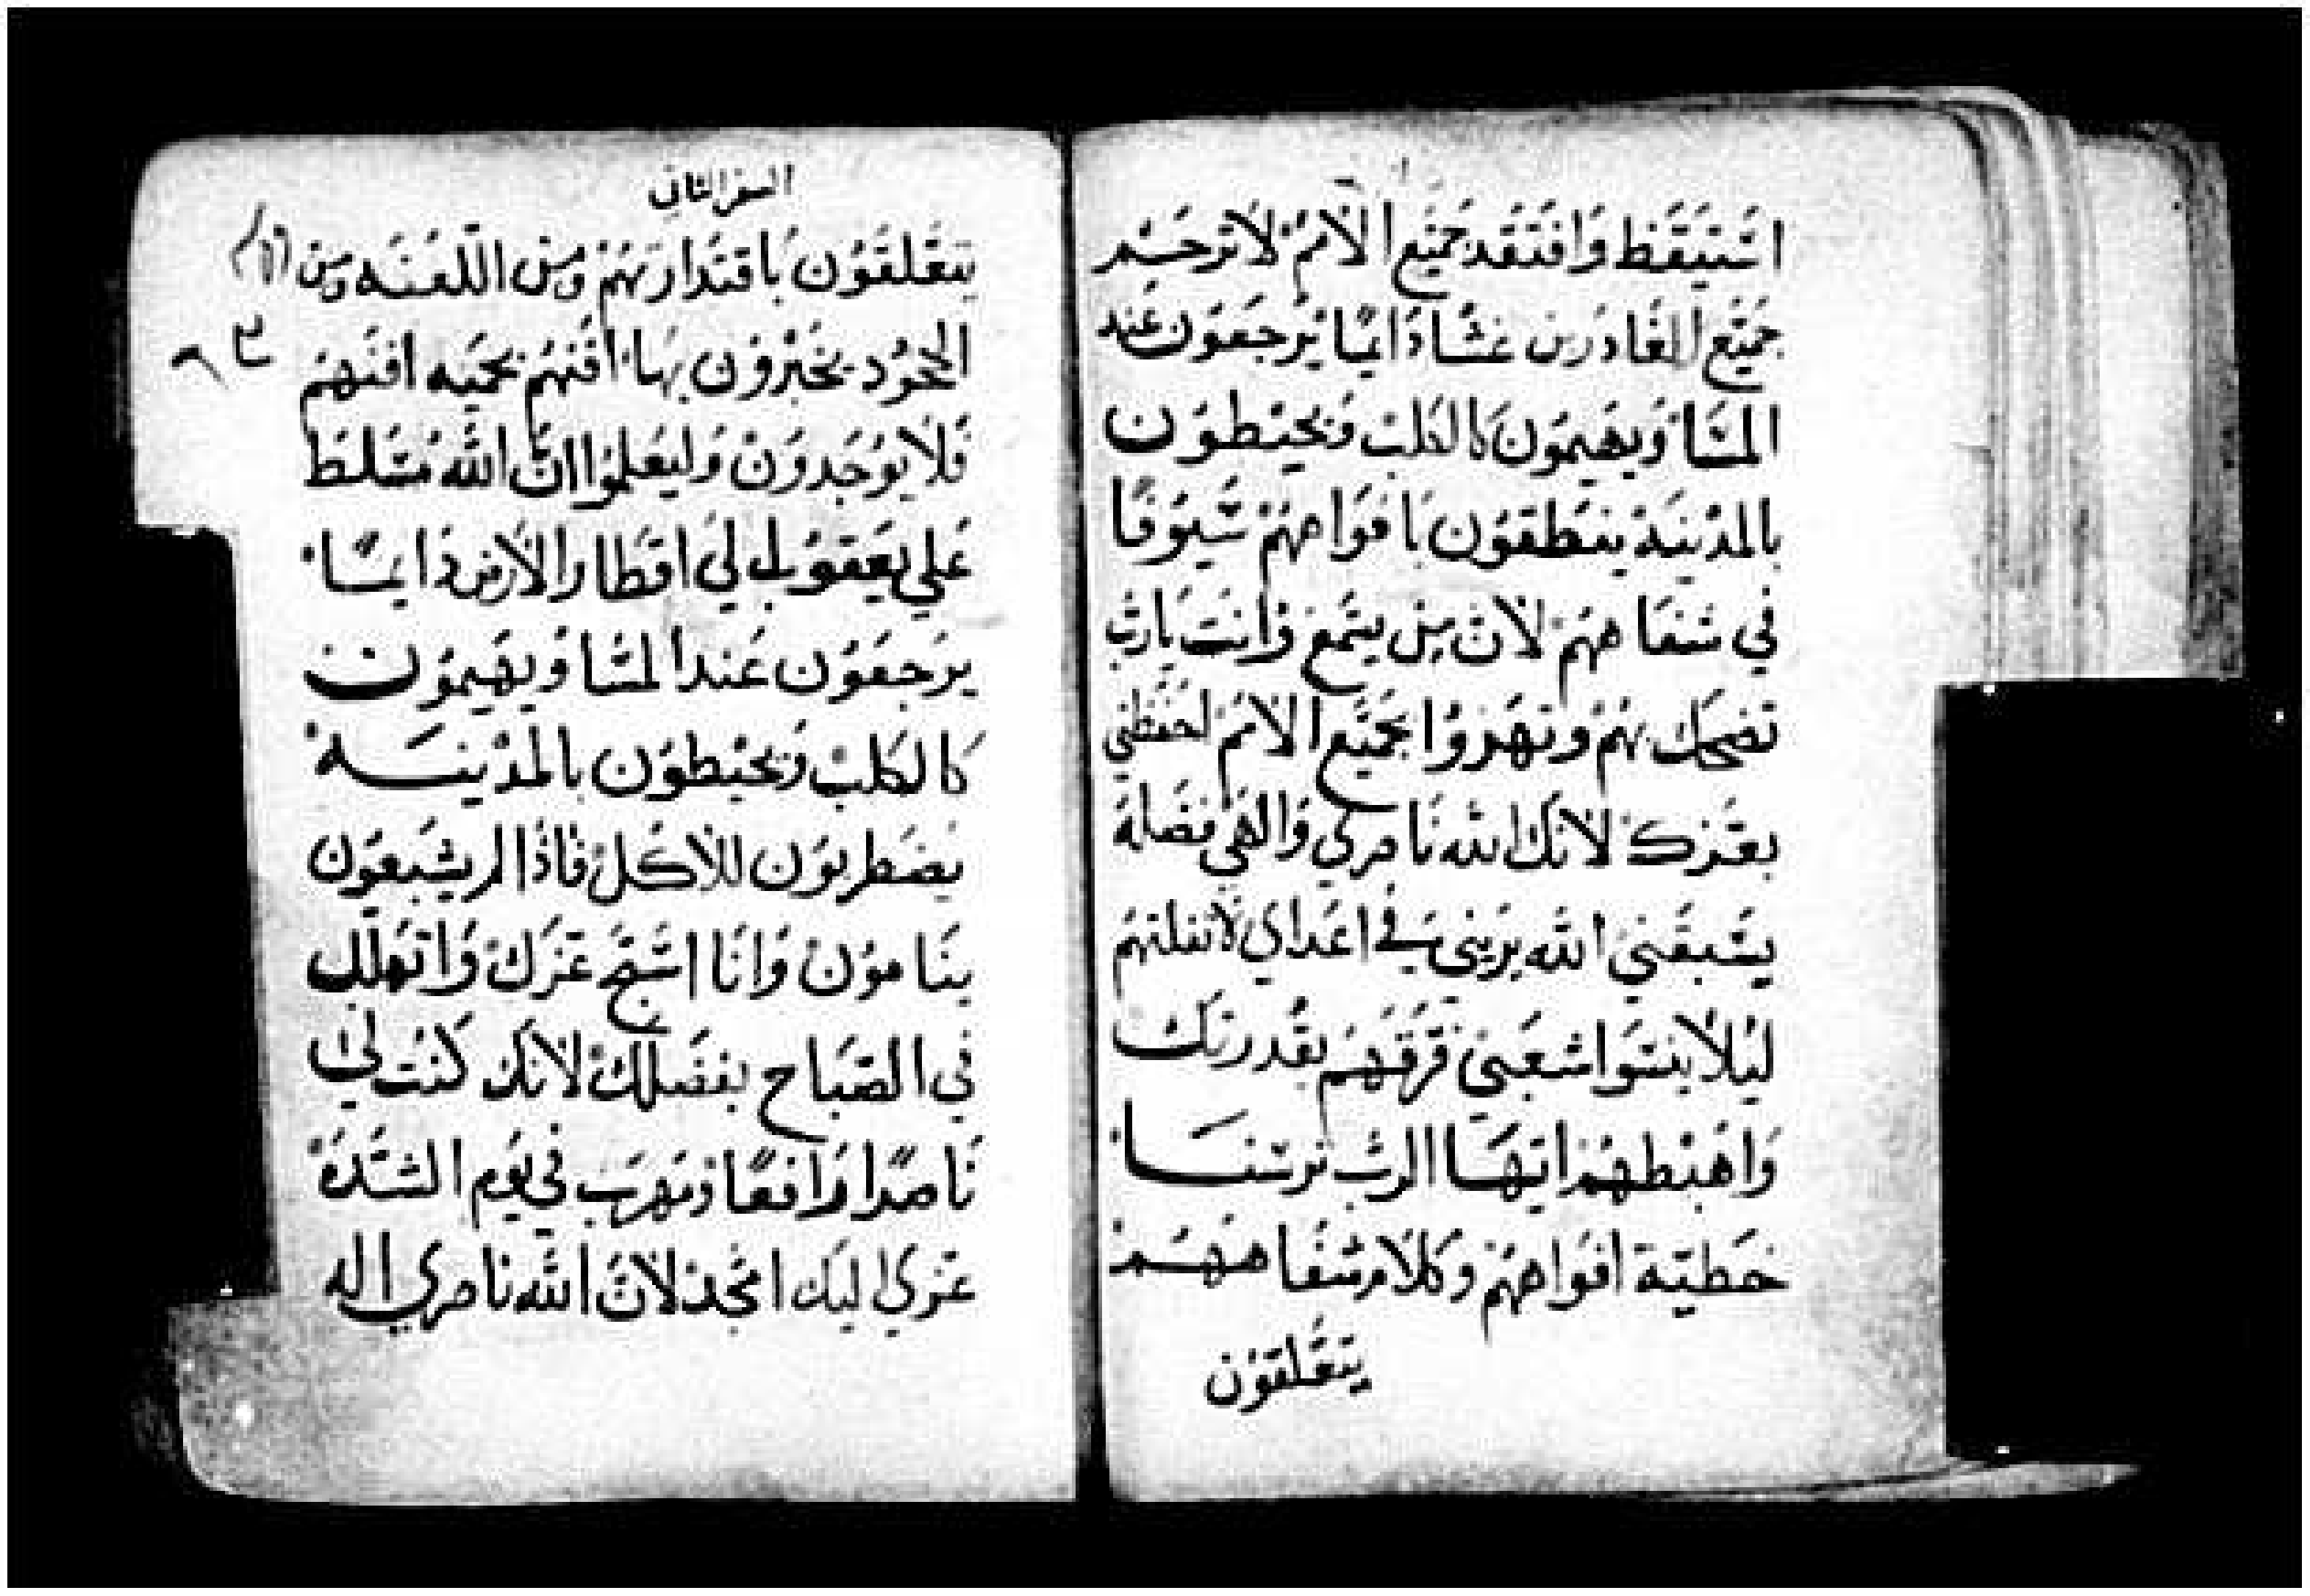 اشتيقظ وافتقد جميع الامم لا ترحم
جميع الغادرين غشا دايما يرجعون عند
المسا ويهيمون كالكلب ويحيطون
بالمدينة ينطقون بافواههم سيوفا
في شفاههم لان من يسمع وانت يارب
تضحك بهم وتهزوا بجميع الامم احفظني
بعزك لانك الله ناصري والهي فضله
يسبقني الله يريني في اعداي لا تقتلهم
ليلا ينسوا شعبي فرقهم بقدرتك
واهبطهم ايها الرب ترسنا
خطية افواههم وكلام شفاههم
يتعلقون
السفر الثاني
يتعلقون باقتدارهم ومن اللعنه ومن
الجحود يخبرون بها افنهم بحميه افنهم
فلا يوجدون وليعلموا ان الله متسلط
علي يعقوب الي اقطار الارض دايما
يرجعون عند المسا ويهيمون
كالكلب ويحيطون بالمدينه
يضطربون للاكل فاذا لم يشبعون
ينامون وانا اسبح عزك واتهلل
في الصباح بفضلك لانك كنت لي
ناصرا رافعا ومهرب في يوم الشده
عزي اليك امجد لان الله ناصري اله